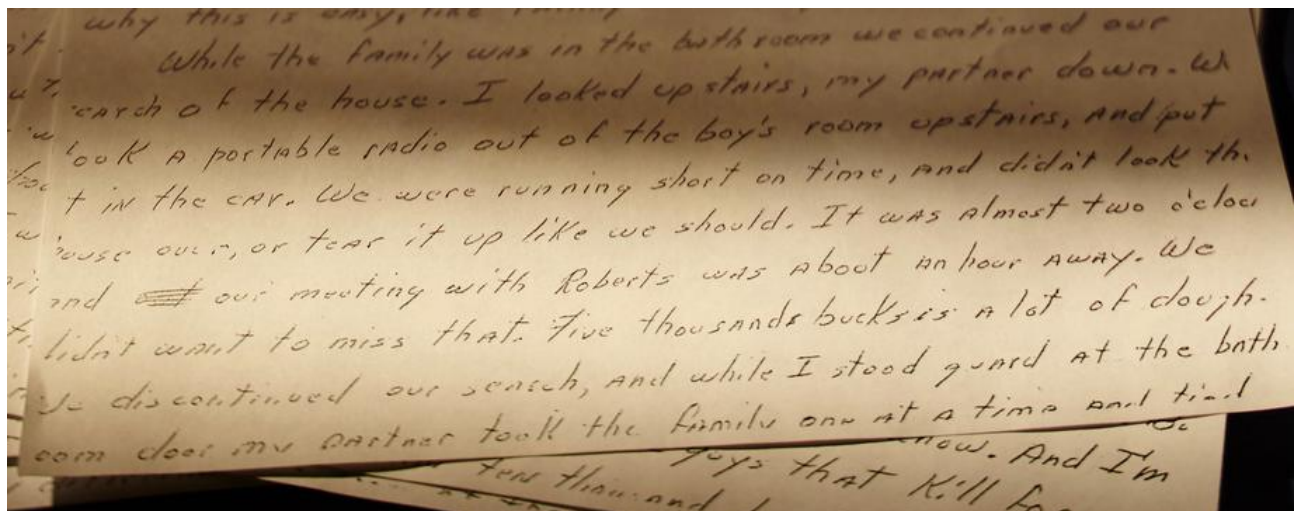 why this is easy, like
While the family was in the bathroom we continued our
earch of the house. I looked upstairs, my partner down. W
ook a portable radio out of the boy's room upstairs, and put
t in the car. We were running short on time, and didn't look th
ouse over, or tear it up like we should. It was almost two o'cloc
and our meeting with Roberts was about an hour away. We
didn't want to miss that. Five thousands bucks is a lot of dough.
discontinued our search, and while I stood guard at the bath
oom door my partner took the family one at a time and tied
now. And I'm
ten thousand
guys that kill fo